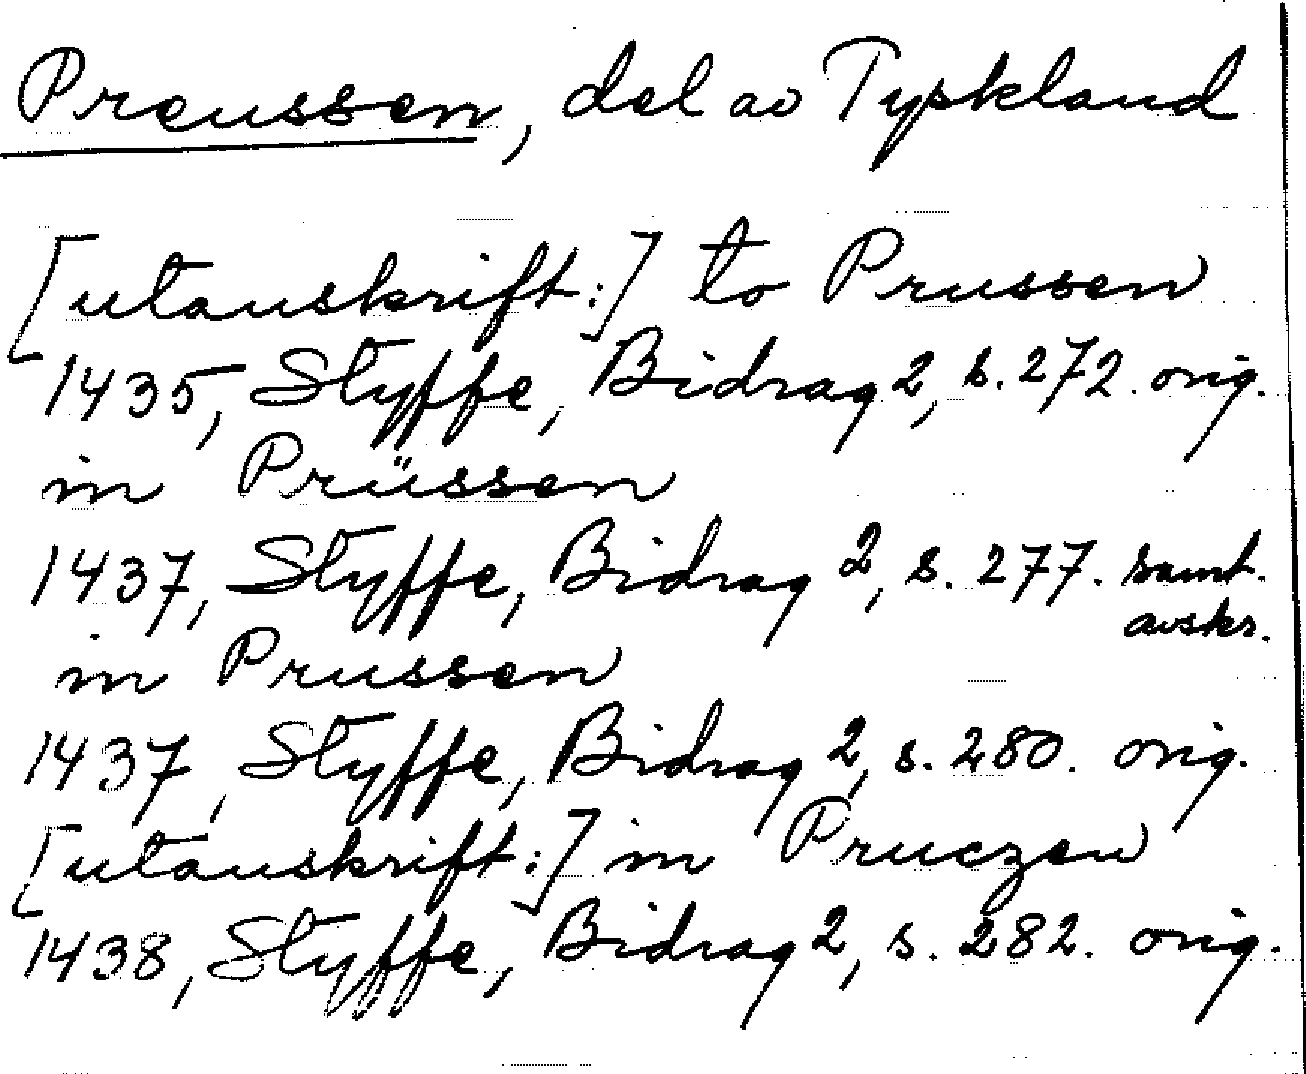 Preussen, del av Tyskland
[utanskrift:] to Prussen
1435, Styffe, Bidrag 2, s. 272. orig.
in Prüssen
1437, Styffe, Bidrag 2, s. 277. samt.
avskr.
in Prussen
1437, Styffe, Bidrag 2, s. 280. orig.
[utanskrift:] in Pruczen
1438, Styffe, Bidrag 2, s. 282. orig.